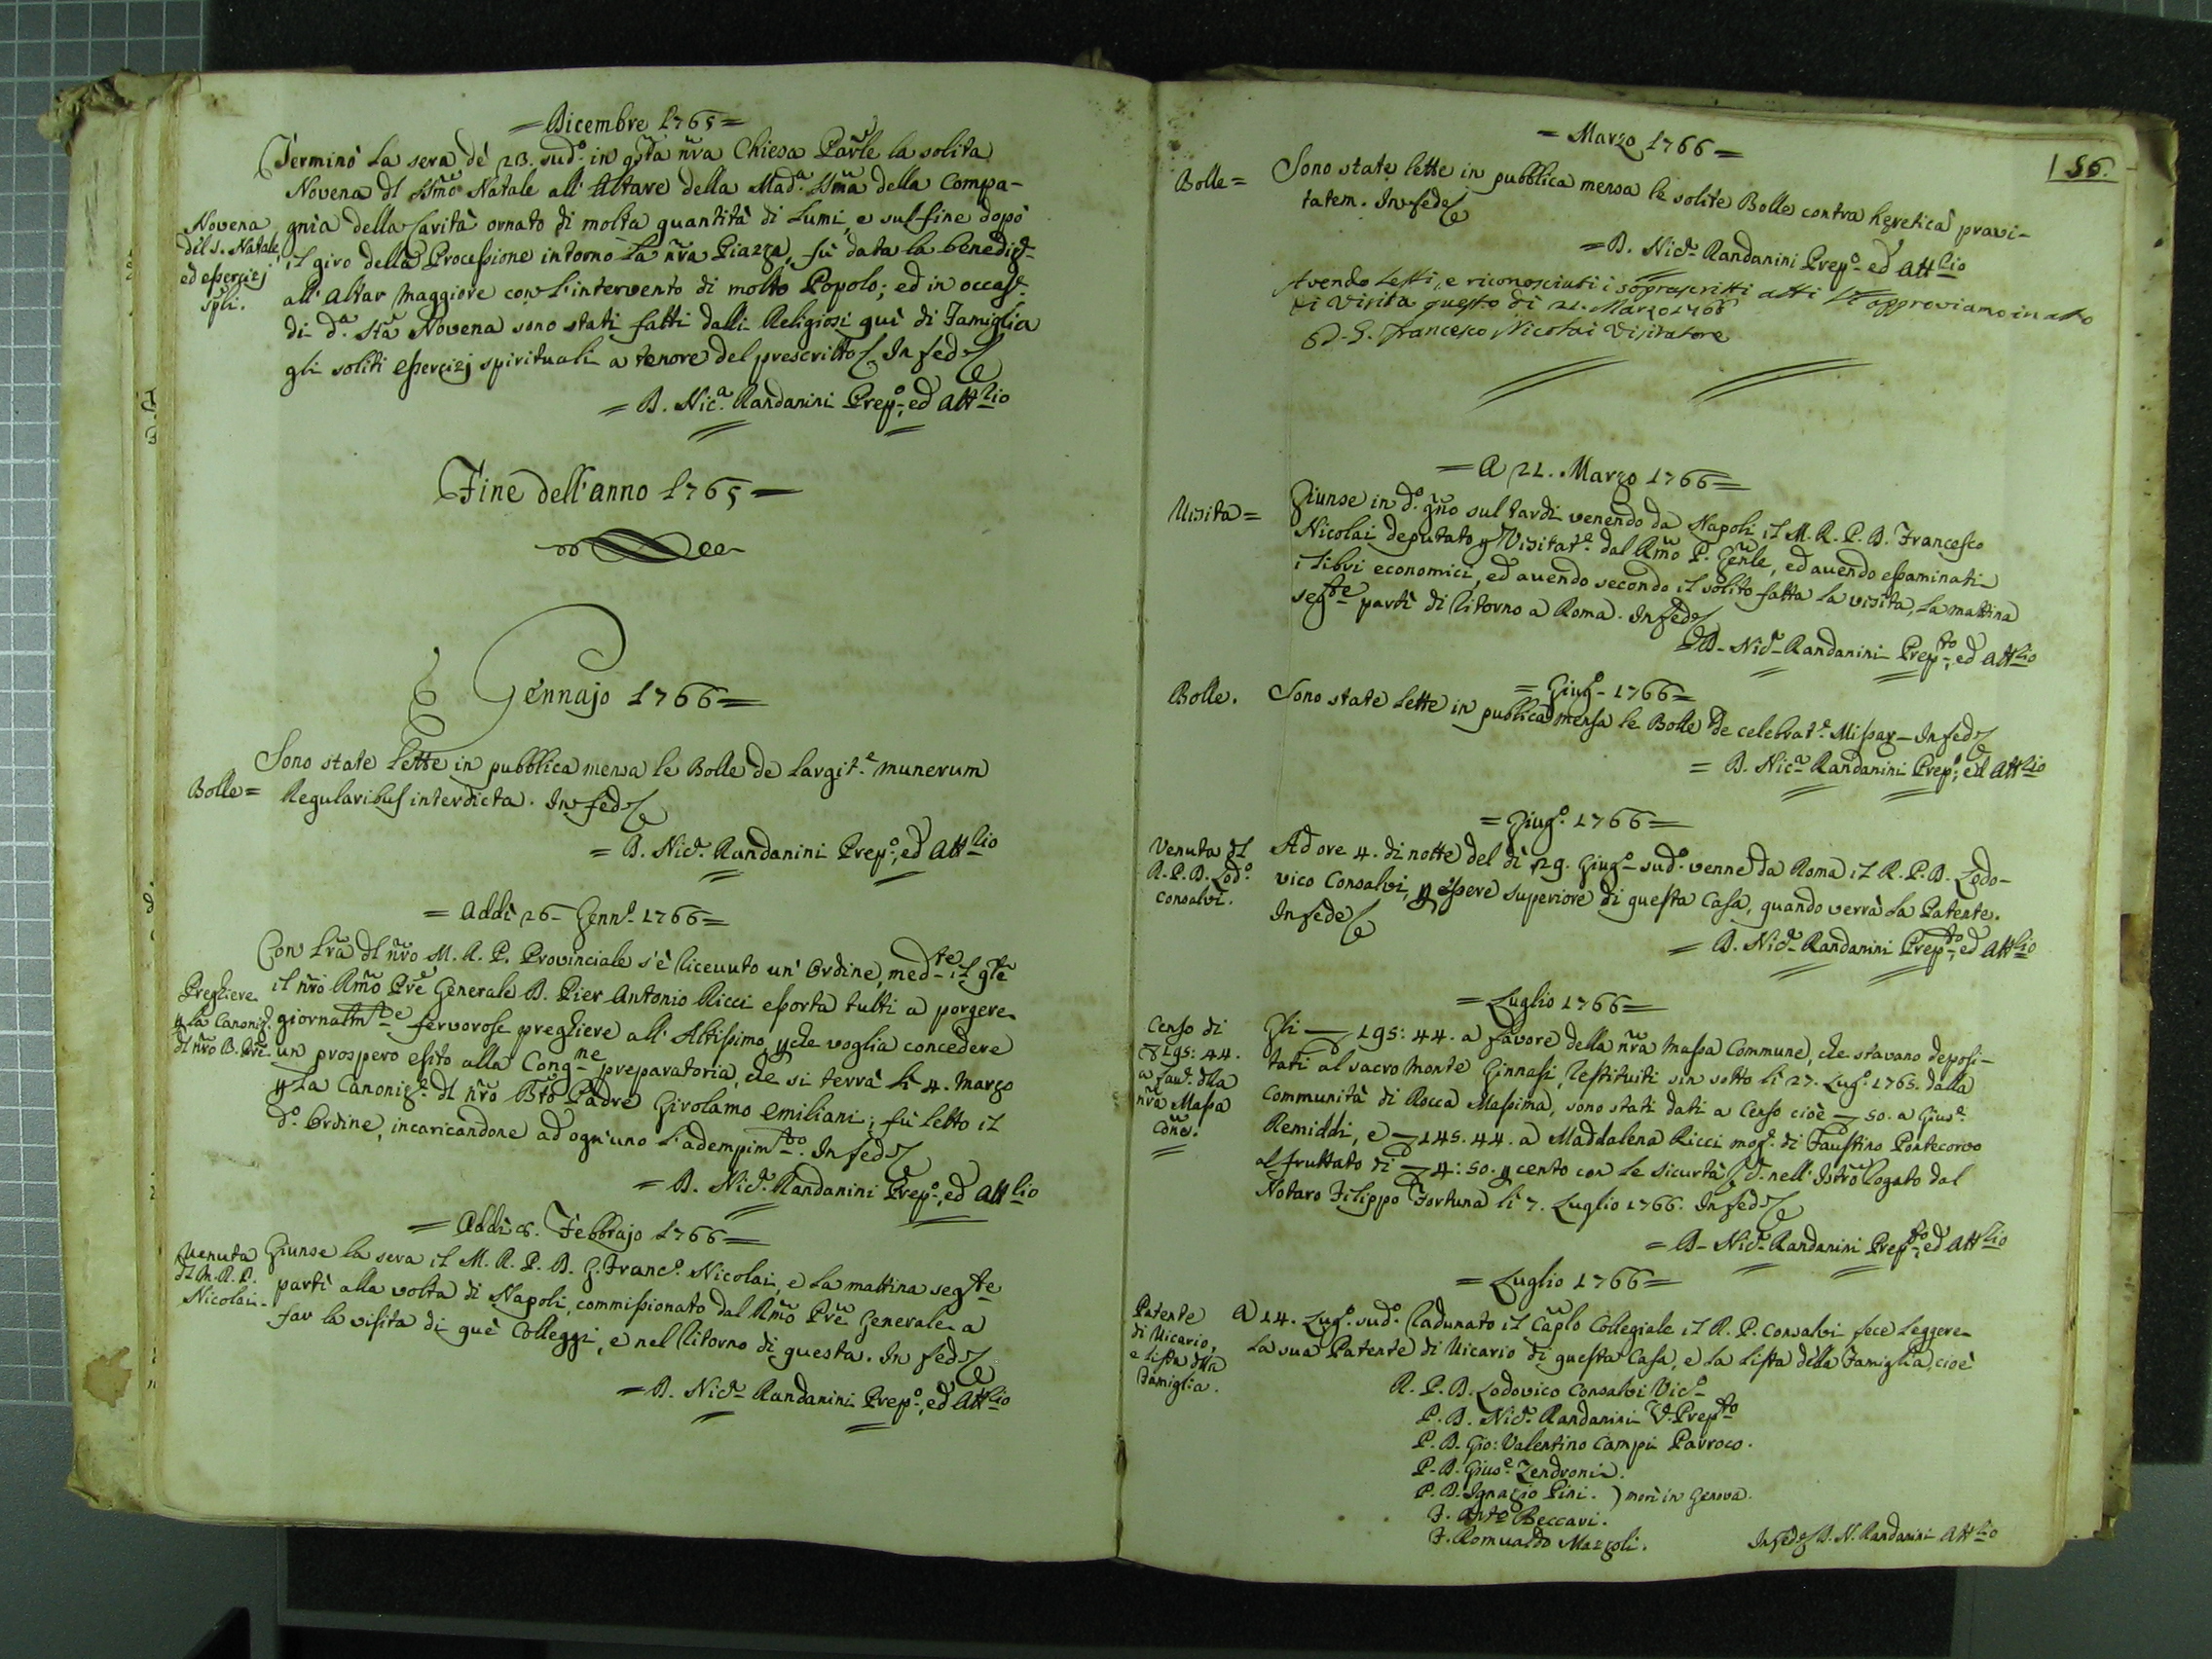 = Dicembre 1765 =
Terminò la sera dè 23. sud.o in q̃sta ñra Chiesa Parle la solita
Novena dl SSmo Natale all' Altare della Mad.a SSma della Compa-
Novena
del S. Natale,
ed esercizj
spli.
gnia della Carità ornato di molta quantità di lumi, e sul fine dopo
il giro della Processione intorno la ñra Piazza, fù data la benediz.e
all' Altar Maggiore con l'intervento di molto Popolo; ed in occas.e
di d.a Sta Novena sono stati fatti dalli Religiosi quì di Famiglia
gli soliti esercizj spirituali a tenore del prescritto. In fede
= D. Nic.a Randanini Prep.o, ed Attlio
Fine dell'anno 1765 =
Gennajo 1766 =
Sono state lette in pubblica mensa le Bolle de largit.e munerum
Bolle =
Regularibus interdicta. In fede
= D. Nic.a Randanini Prep.o, ed Attlio
= Addì 26 - Genn.o 1766 =
Con Lra dl ñro M. R. P. Provinciale s'è ricevuto un' Ordine, medte il qle
Preghiere
p la Canoniz.
dl ñro B. Pre
il ñro Rmo Pre Generale D. Pier Antonio Ricci esorta tutti a porgere
giornalmte fervorose preghiere all' Altissimo, p che voglia concedere
un prospero esito alla Congne preparatoria, che si terrà li 4. Marzo
p la Canoniz.e dl ñro Bto Padre Girolamo Emiliani; fù letto il
d.o Ordine, incaricandone ad ogn'uno l'adempimto. In fede
= D. Nic.a Randanini Prep.o, ed Attlio
= Addì 8. Febbrajo 1766 =
Venuta
dl M. R. P.
Nicolai.
Giunse la sera il M. R. P. D. G. Franc.o Nicolai, e la mattina segte
partì alla volta di Napoli, commissionato dal Rmo Pre Generale a
far la visita di què Colleggi, e nel ritorno di questa. In fede
= D. Nic.a Randanini Prep.o, ed Attlio
156.
= Marzo 1766 =
Bolle =
Sono state lette in pubblica mensa le solite Bolle contra heretica pravi-
tatem. In fede
= D. Nic.a Randanini Prep.o ed Attlio
Avendo letti, e riconosciuti i soprascritti atti li approviamo in atto
di Visita questo dì 21. Marzo 1766
D. G. Francesco Nicolai Visitatore
= A 21. Marzo 1766 =
Visita =
Giunse in d.o gño sul tardi venendo da Napoli il M. R. P. D. Francesco
Nicolai deputato p Visitat.e dal Rmo P. Genle, ed avendo esaminati
i libri economici, ed avendo secondo il solito fatta la visita, la mattina
segte partì di ritorno a Roma. In fede
D. Nic.a Randanini Prepto, ed Attlio
= Giug.o 1766 =
Bolle.
Sono state lette in publica mensa le Bolle de celebrat.e Missar. In fede
= D. Nic.a Randanini Prep.o, ed Attlio
= Giug.o 1766 =
Venuta dl
R. P. D. Lod.o
Consalvi.
Ad ore 4. di notte del dì 29. Giug.o sud.o venne da Roma il R. P. D. Lodo-
vico Consalvi, p essere superiore di questa Casa, quando verrà la Patente.
In fede
= D. Nic.a Randanini Prepto, ed Attlio
= Luglio 1766 =
Censo di
195: 44.
a fav.e dlla
ñra Massa
Cõne.
Gli 195: 44. a favore della ñra Massa Commune, che stavano deposi-
tati al sacro Monte Ginnasi, restituiti sin sotto li 27. Lug.o 1765. dalla
Communità di Rocca Massima, sono stati dati a Censo cioè 50. a Gius.e
Remiddi, e 145. 44. a Maddalena Ricci mog.e di Faustino Pontecorvo
al fruttato di 4: 50. p cento con le sicurtà nell' Istro rogato dal
Notaro Filippo Fortuna li 7. Luglio 1766. In fede
= D. Nic.a Randanini Prepto, ed Attlio
= Luglio 1766 =
Patente
di Vicario,
e lista dlla
Famiglia.
A 14. Lug.o sud.o radunato il Caplo Collegiale il R. P. Consalvi fece leggere
la sua Patente di Vicario di questa Casa, e la lista della Famiglia, cioè
R. P. D. Lodovico Consalvi Vic.o
P. D. Nic.a Randanini V. Prepto
P. D. Gio: Valentino Campi Parroco.
P. D. Gius.e Zendroni.
P. D. Ignazio Pini. ) morì in Genova.
F. Anto Beccari.
F. Romualdo Mazzoli.
In fede D. N. Randanini Attlio